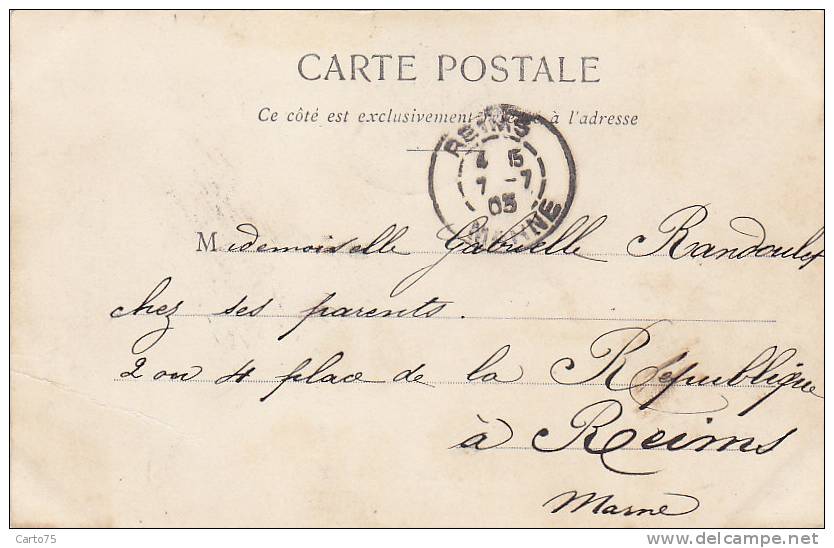 CARTE POSTALE
Ce côté est exclusivement à l'adresse
REIMS
4 15
7 -7
03
MARNE
Mademoiselle Gabrielle
chez ses parents.
2 ou 4 place de la République
à Reims
Marne
Carto75
www.delcampe.net